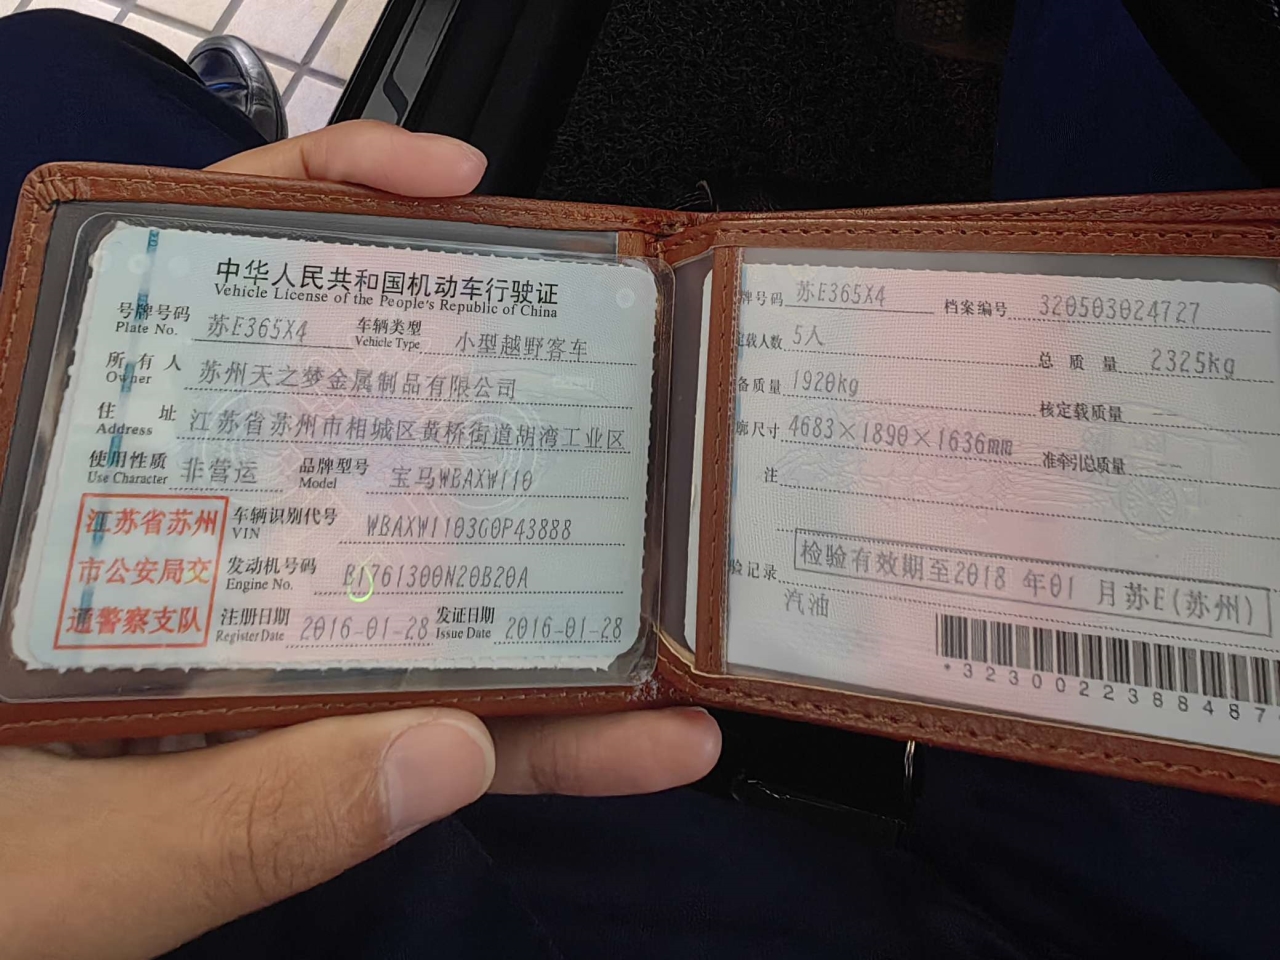 中华人民共和国机动车行驶证
Vehicle License of the People's Republic of China
号牌号码 苏E365X4 车辆类型 小型越野客车
Plate No. Vehicle Type
所有人 苏州天之梦金属制品有限公司
Owner
住址 江苏省苏州市相城区黄桥街道胡湾工业区
Address
使用性质 非营运 品牌型号 宝马WBAXW110
Use Character Model
江苏省苏州
市公安局交
通警察支队
车辆识别代号 WBAXW1103G0P43888
VIN
发动机号码 B1761300N20B20A
Engine No.
注册日期 2016-01-28 发证日期 2016-01-28
Register Date Issue Date
牌号码 苏E365X4 档案编号 320503024727
定载人数 5人 总质量 2325kg
备质量 1920kg 核定载质量 --
廓尺寸 4683×1890×1636mm 准牵引总质量 --
注
验记录 检验有效期至2018年01月苏E(苏州)
汽油
*3230022388487